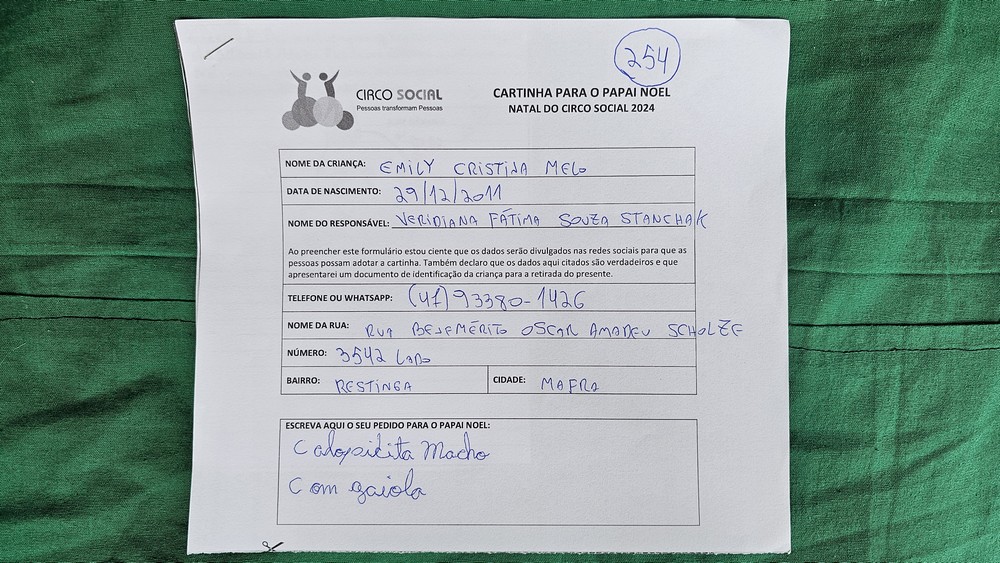 254
CIRCO SOCIAL
Pessoas transformam Pessoas
CARTINHA PARA O PAPAI NOEL
NATAL DO CIRCO SOCIAL 2024
NOME DA CRIANÇA: EMILY CRISTINA MELO
DATA DE NASCIMENTO: 29/12/2011
NOME DO RESPONSÁVEL: VERIDIANA FÁTIMA SOUZA STANCHAK
Ao preencher este formulário estou ciente que os dados serão divulgados nas redes sociais para que as
pessoas possam adotar a cartinha. Também declaro que os dados aqui citados são verdadeiros e que
apresentarei um documento de identificação da criança para a retirada do presente.
TELEFONE OU WHATSAPP: (47) 93380-1426
NOME DA RUA: RUA BENEMÉRITO OSCAR AMADEU SCHOLZE
NÚMERO: 3542 LADO
BAIRRO: RESTINGA CIDADE: MAFRA
ESCREVA AQUI O SEU PEDIDO PARA O PAPAI NOEL:
Calopicita Macho
Com gaiola